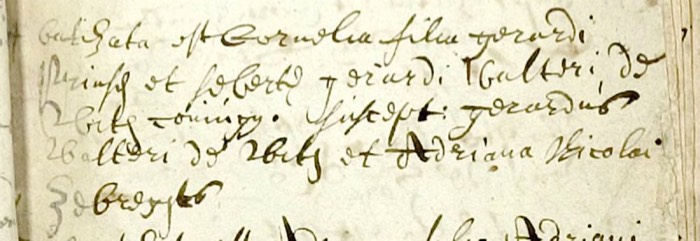 batizata est Cornelia filia gerardi
et gerardi Walteri de
Wit coniug. suscept: gerardus
Walteri de Wit et Adriana Nicolai
Zebregts
Adriani